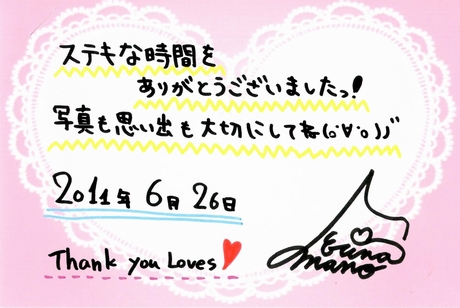 ステキな時間を
ありがとうございましたっ!
写真も思い出も大切にしてね(o'∀'o)ﾉ"
2011年 6月 26日
Thank you Loves♥
Erina
mano